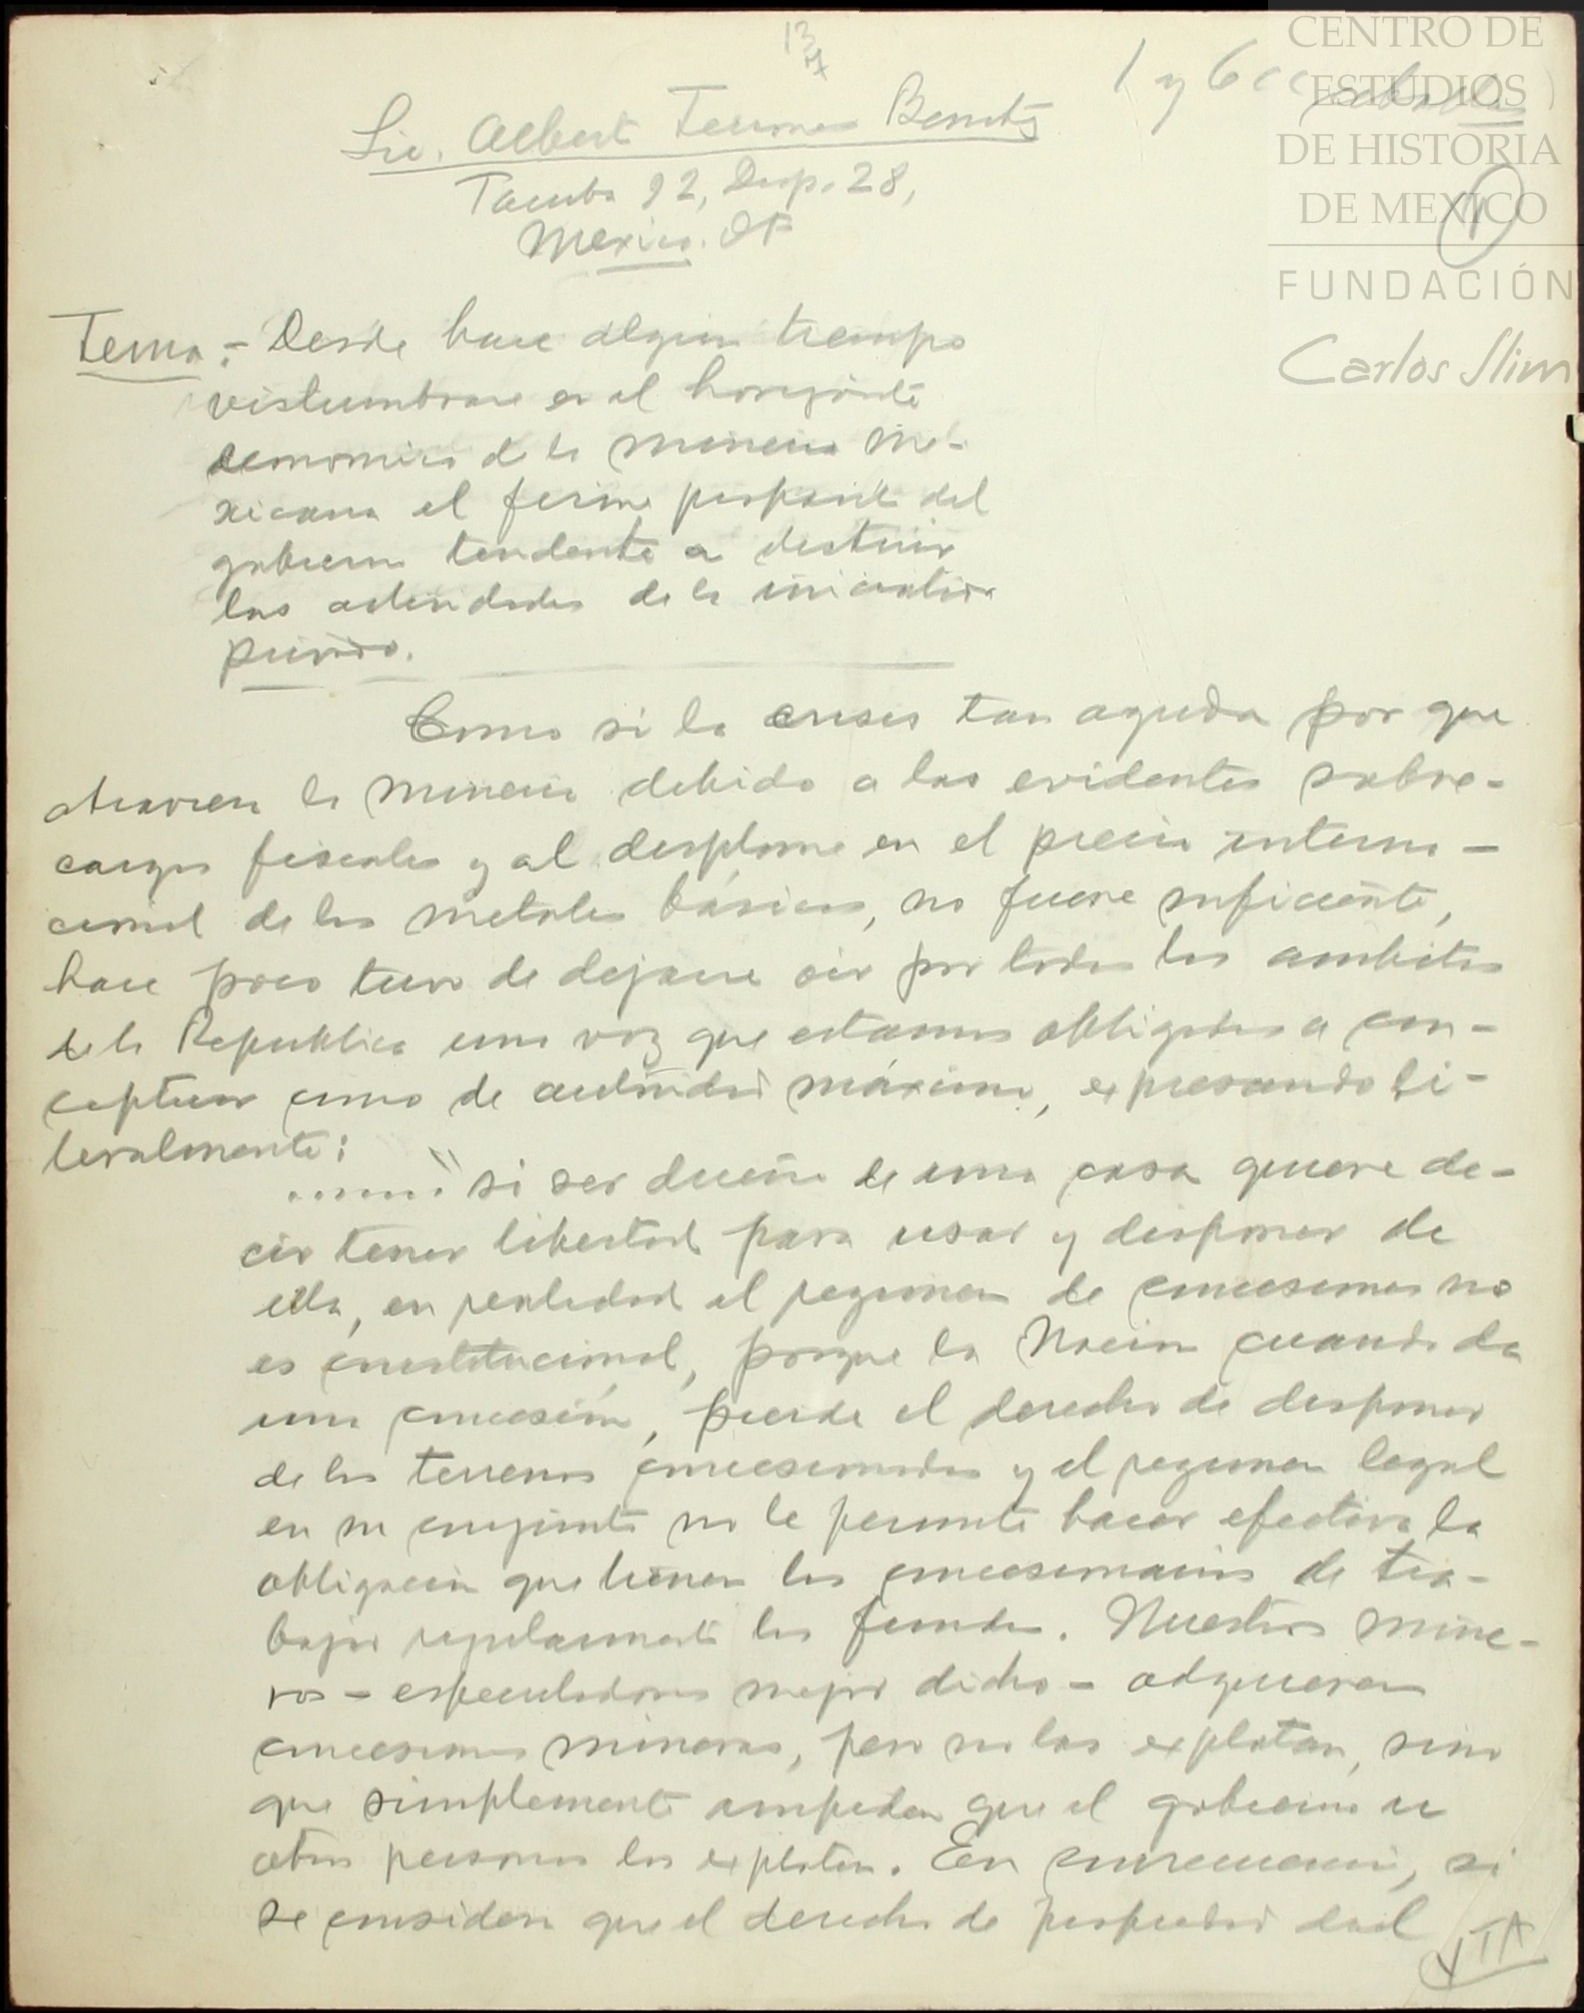 13
1 y 6 cc
CENTRO DE
ESTUDIOS
DE HISTORIA
DE MEXICO
FUNDACIÓN
Carlos Slim
1
Lic. Albert Benitz
Tacuba 92, Desp. 28,
Mexico. DF
Tema:- Desde hace algun tiempo
vislumbrase en el horizonte
economico de la mineria me-
xicana el firme proposito del
gobierno tendente a destruir
las actividades de la iniciativa
privada.
Como si la crisis tan aguda por que
atraviesa la mineria debido a las evidentes sobre-
cargas fiscales y al desplome en el precio interna-
cional de los metales básicos, no fuera suficiente,
hace poco tuvo de dejarse oir por todos los ambitos
de la Republica una voz que estamos obligados a con-
ceptuar como de autoridad máxima, expresando li-
teralmente:
......" si ser dueño de una casa quiere de-
cir tener libertad para usar y disponer de
ella, en realidad el regimen de concesiones no
es constitucional, porque la Nación cuando da
una concesión, pierde el derecho de disponer
de los terrenos concesionados y el regimen legal
en su conjunto no le permite hacer efectiva la
obligacion que tienen los concesionarios de tra-
bajar regularmente los fundos. Nuestros mine-
ros - especuladores mejor dicho - adquieren
concesiones mineras, pero no las explotan, sino
que simplemente impiden que el gobierno u
otras personas las exploten. En consecuencia, si
se considera que el derecho de propiedad del
VTA